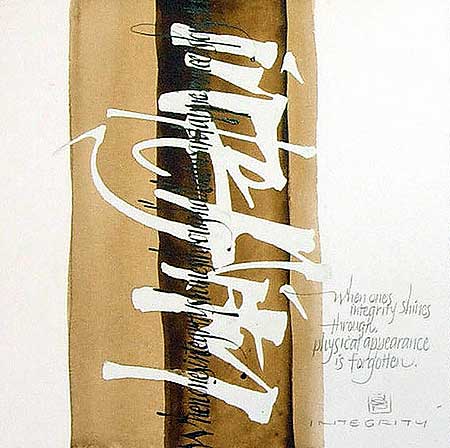 integrity
When ones integrity shines through physical appearance
When ones
integrity shines
through,
physical appearance
is forgotten.
INTEGRITY